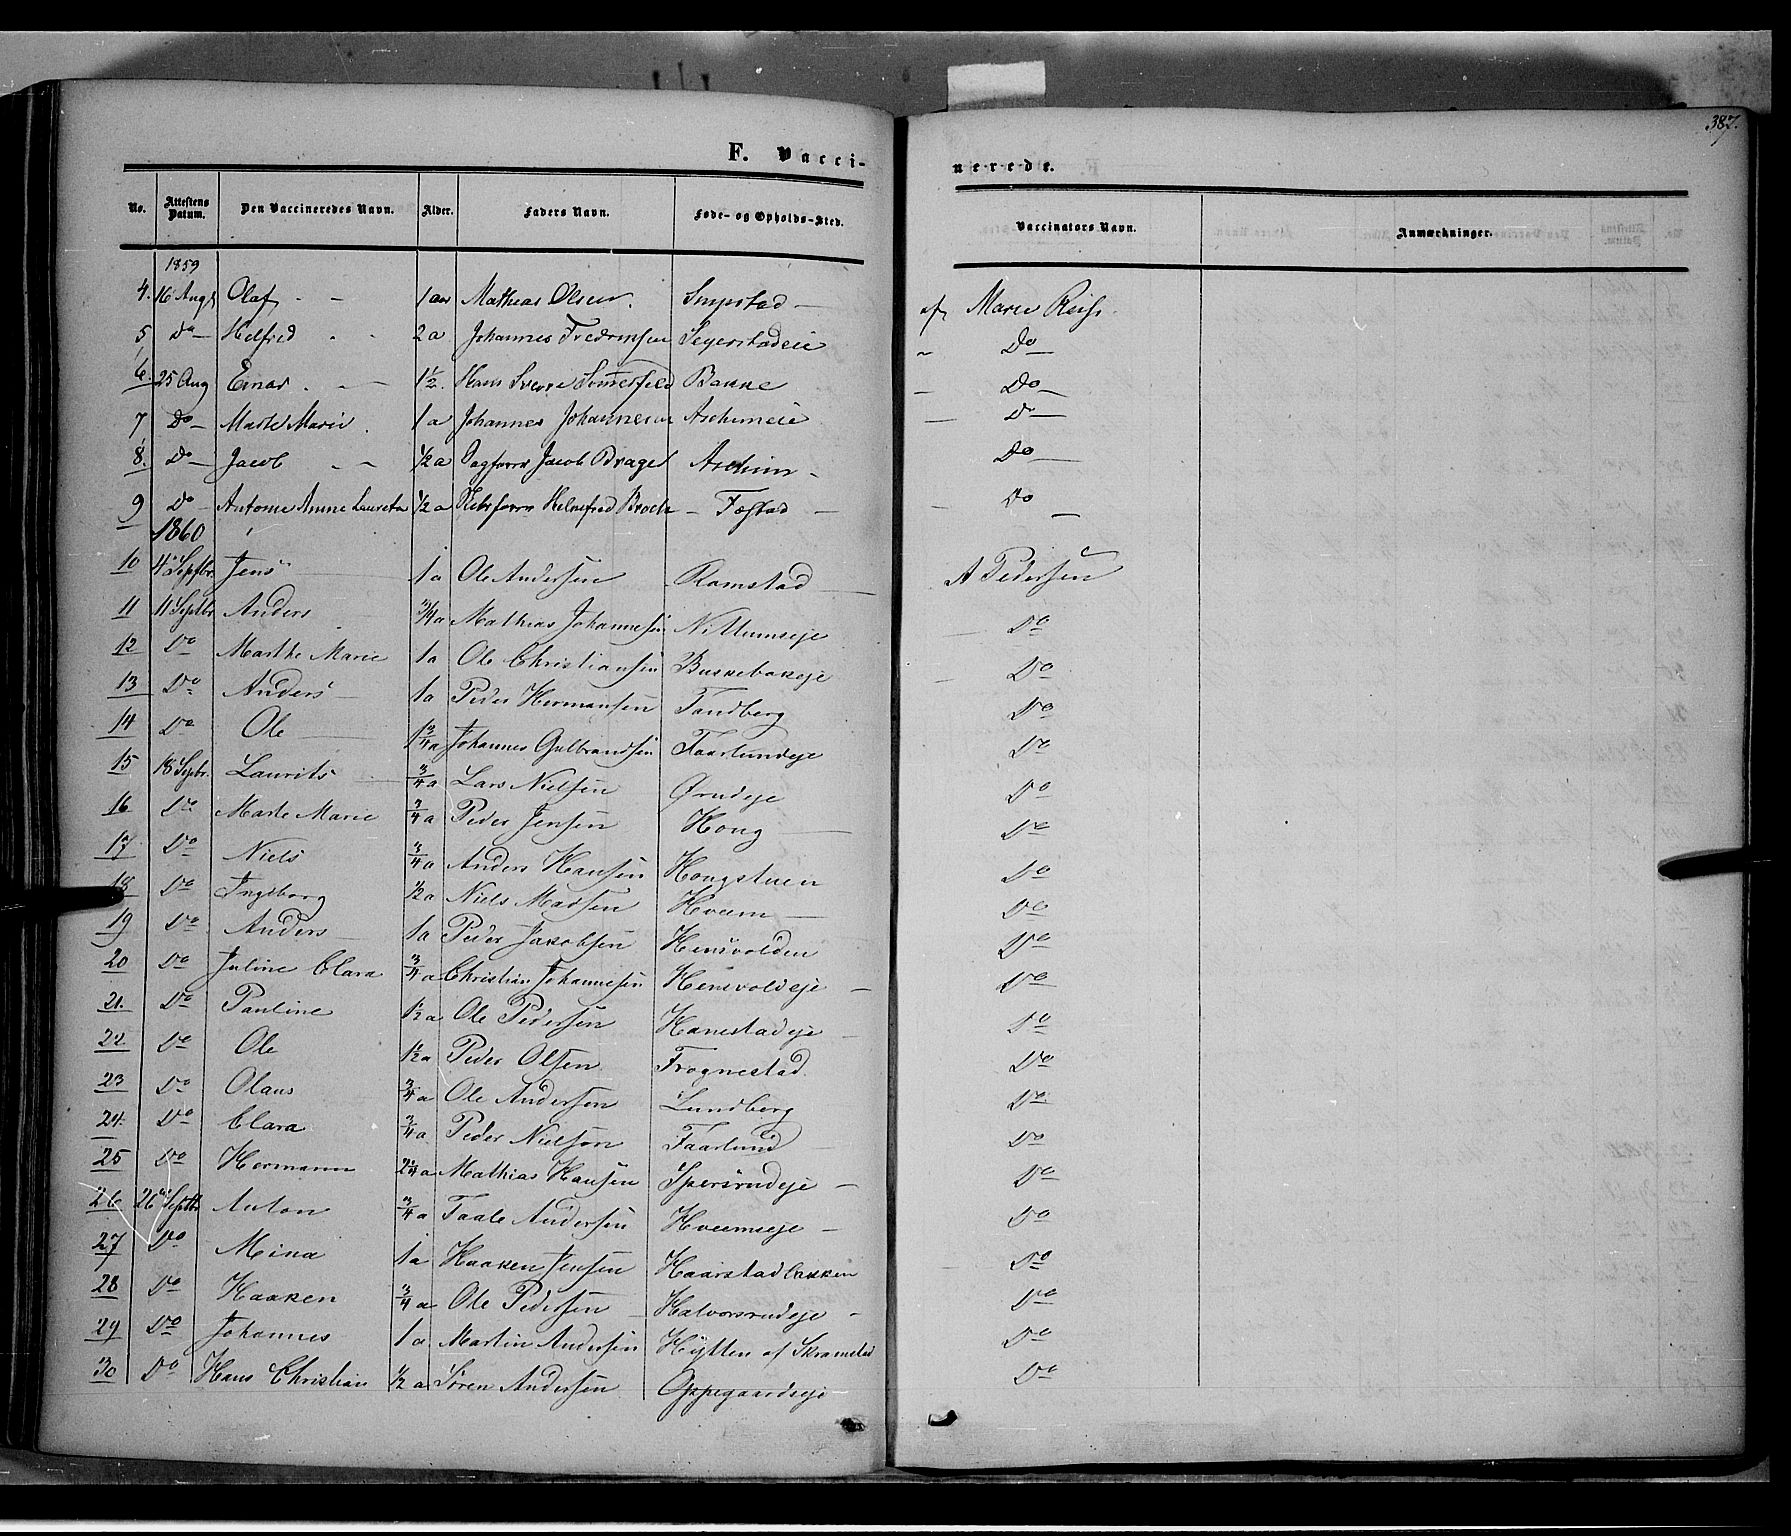 387.
F. Vacci- nerede.
No. Attestens Datum. Den Vaccineredes Navn. Alder. Faders Navn. Føde- og Opholds-Sted. Vaccinators Navn. Anmærkninger.
1859
4. 16 Augt Olaf 1 aar Mathias Olsen. af Marie
5 Do Helfred 2 a Johannes Do
6 25 Aug Einar 1½ Hans Banke Do
7 Do Marte Marie 1 a Johannes Johannesen Aschimeie Do
8. Do Jacob ½ a Jacob Aschim Do
9 Do Anne ½ a Do
1860
10 4 Septbr Jens 1 a Ole Andersen Ramstad A Pedersen
11 11 Septbr Anders ¾ a Mathias Johannesen Do
12 Do Marthe Marie 1 a Ole Christiansen Do
13 Do Anders 1 a Peder Hermansen Tandberg Do
14 Do Ole 1¾ a Johannes Gulbrandsen Taarlundeje Do
15 18 Septbr. Laurits ¾ a Lars Nielsen Ørudeje Do
16 Do Marte Marie ¾ a Peder Jensen Houg Do
17 Do Niels ¾ a Anders Hansen Hougstuen Do
18 Do Ingeborg ½ a Niels Madsen Hveem Do
19 Do Anders 1 a Peder Jakobsen Hensvolden Do
20 Do Juline Clara ¾ a Christian Johannesen Hensvoldeje Do
21. Do Pauline ½ a Ole Pedersen Hanestadeje Do
22. Do Ole ½ a Peder Olsen Frognestad Do
23 Do Olaus ¾ a Ole Andersen Lundberg Do
24. Do Clara ¾ a Peder Nielsen Taarlund Do
25 Do Hermann 2¼ a Mathias Hansen Do
26 26 Septbr Anton ¾ a Taale Andersen Hveemseje Do
27 Do Mina 1 a Haaken Jensen Haarstadbakken Do
28 Do Haaken ¾ a Ole Pedersen Halvorsrudeje Do
29 Do Johannes 1 a Martin Andersen Hÿtten af Skramstad Do
30 Do Hans Christian ½ a Søren Andersen Oppegaardseje Do